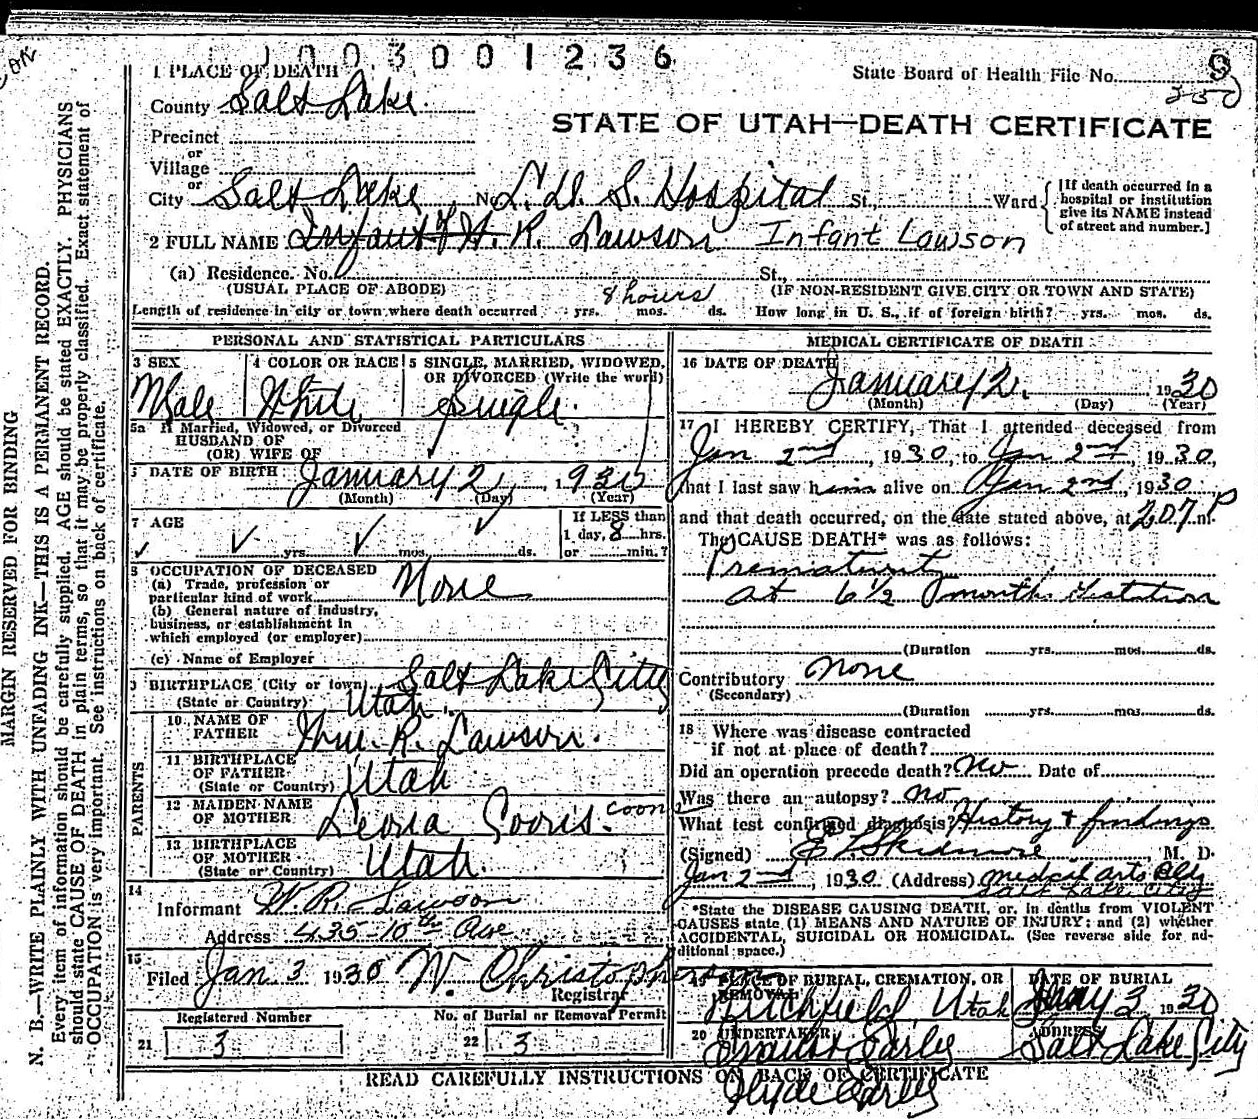 1003001236
1 PLACE OF DEATH
State Board of Health File No. 9
County Salt Lake.
STATE OF UTAH—DEATH CERTIFICATE
Precinct
or
Village
or
City Salt Lake, No. L. D. S. Hospital St., Ward
[If death occurred in a hospital or institution give its NAME instead of street and number.]
2 FULL NAME Infant of W. R. Lawson Infant Lawson
(a) Residence. No. St.,
(USUAL PLACE OF ABODE) (IF NON-RESIDENT GIVE CITY OR TOWN AND STATE)
8 hours
Length of residence in city or town where death occurred yrs. mos. ds. How long in U. S., if of foreign birth? yrs. mos. ds.
PERSONAL AND STATISTICAL PARTICULARS
3 SEX Male
4 COLOR OR RACE White
5 SINGLE, MARRIED, WIDOWED, OR DIVORCED (Write the word) Single.
5a If Married, Widowed, or Divorced
HUSBAND OF
(OR) WIFE OF
DATE OF BIRTH January 2, 1930
(Month) (Day) (Year)
7 AGE yrs. mos. ds.
If LESS than 1 day, 8 hrs. or min.?
8 OCCUPATION OF DECEASED
(a) Trade, profession or particular kind of work None
(b) General nature of industry, business, or establishment in which employed (or employer)
(c) Name of Employer
9 BIRTHPLACE (City or town) Salt Lake City
(State or Country) Utah.
PARENTS
10 NAME OF FATHER Wm. R. Lawson.
11 BIRTHPLACE OF FATHER (State or Country) Utah
12 MAIDEN NAME OF MOTHER Leona
coon
13 BIRTHPLACE OF MOTHER (State or Country) Utah.
14 Informant W. R. Lawson
Address 435-10th Ave
15 Filed Jan 3 1930 W. Christopherson
Registrar
Registered Number No. of Burial or Removal Permit
21 3 22 3
MEDICAL CERTIFICATE OF DEATH
16 DATE OF DEATH January 2. 1930
(Month) (Day) (Year)
17 I HEREBY CERTIFY, That I attended deceased from
Jan 2nd, 1930, to Jan 2nd, 1930,
that I last saw him alive on Jan 2nd, 1930
and that death occurred, on the date stated above, at 207 P m.
The CAUSE DEATH* was as follows:
Prematurity
at 6½ months Gestation
(Duration yrs. mos. ds.
Contributory None
(Secondary)
(Duration yrs. mos. ds.
18 Where was disease contracted
if not at place of death?
Did an operation precede death? No Date of
Was there an autopsy? no
What test confirmed diagnosis? History & findings
(Signed) E L Skidmore M. D.
Jan 2nd, 1930 (Address) Medical arts Bldg
Salt Lake City
*State the DISEASE CAUSING DEATH, or, in deaths from VIOLENT
CAUSES state (1) MEANS AND NATURE OF INJURY; and (2) whether
ACCIDENTAL, SUICIDAL OR HOMICIDAL. (See reverse side for ad-
ditional space.)
19 PLACE OF BURIAL, CREMATION, OR REMOVAL Richfield, Utah
DATE OF BURIAL Jany 3 1930
20 UNDERTAKER Earley
ADDRESS Salt Lake City
Clyde Earley
READ CAREFULLY INSTRUCTIONS ON BACK OF CERTIFICATE
MARGIN RESERVED FOR BINDING
N. B.—WRITE PLAINLY WITH UNFADING INK—THIS IS A PERMANENT RECORD.
Every item of information should be carefully supplied. AGE should be stated EXACTLY. PHYSICIANS
should state CAUSE OF DEATH in plain terms, so that it may be properly classified. Exact statement of
OCCUPATION is very important. See instructions on back of certificate.